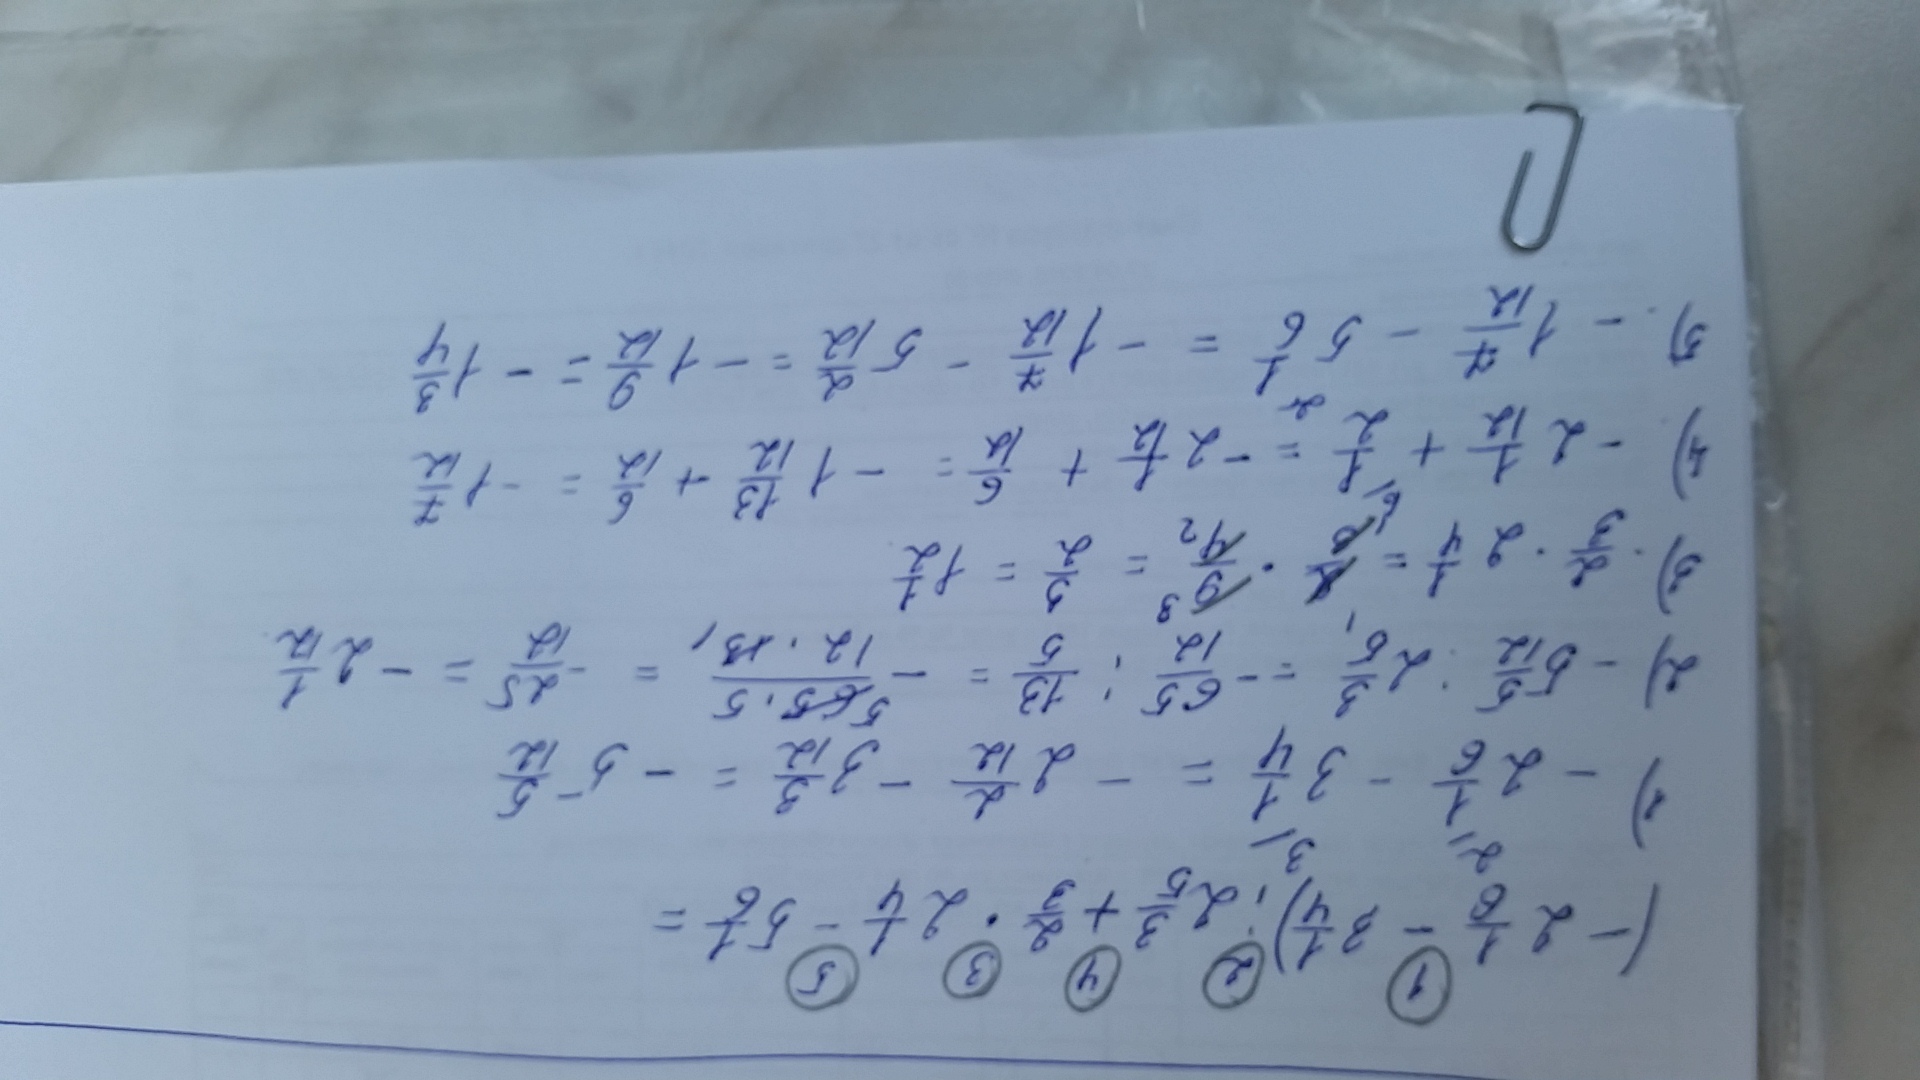 ① ② ④ ③ ⑤
(-2 1/6 - 3 1/4) : 2 3/5 + 2/3 · 2 1/4 - 5 1/6 =
1) -2 1/6 - 3 1/4 = -2 2/12 - 3 3/12 = -5 5/12
2) -5 5/12 : 2 3/5 = -65/12 : 13/5 = -65·5/12·13 = -25/12 = -2 1/12
3) 2/3 · 2 1/4 = 2/3 · 9/4 = 3/2 = 1 1/2
4) -2 1/12 + 1/2 = -2 1/12 + 6/12 = -1 13/12 + 6/12 = -1 7/12
5) -1 7/12 - 5 1/6 = -1 7/12 - 5 2/12 = -1 9/12 = -1 3/4